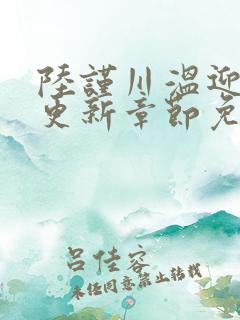 陸謹川溫迎
更新章節免
呂佳容
未任同意禁止转载